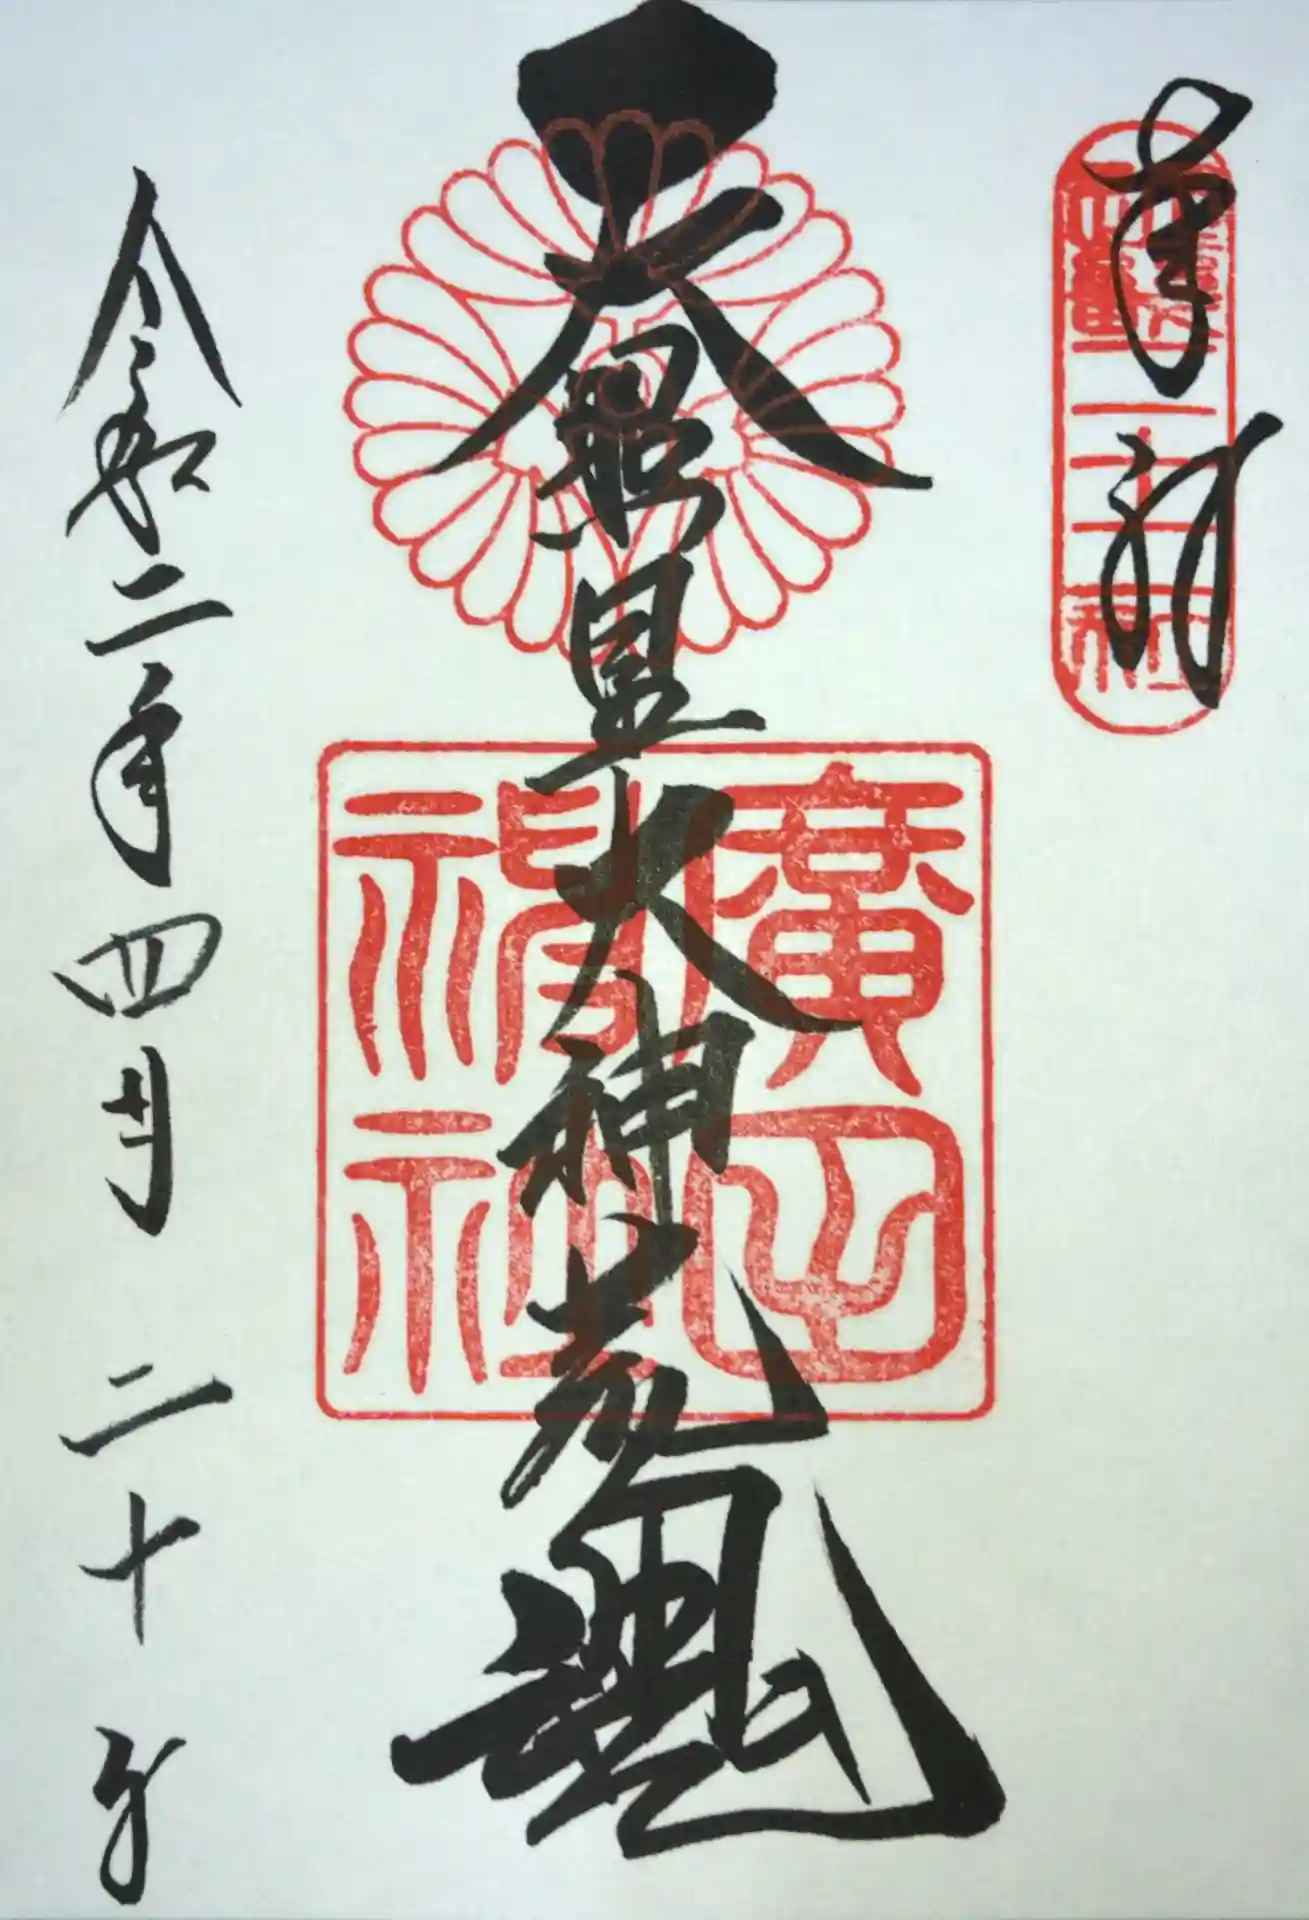 奉拝
二十二社
天照皇大神荒魂
廣田神社
令和二年四月二十